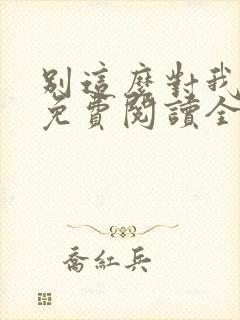 別這麼對我
免費閱讀全
喬紅兵